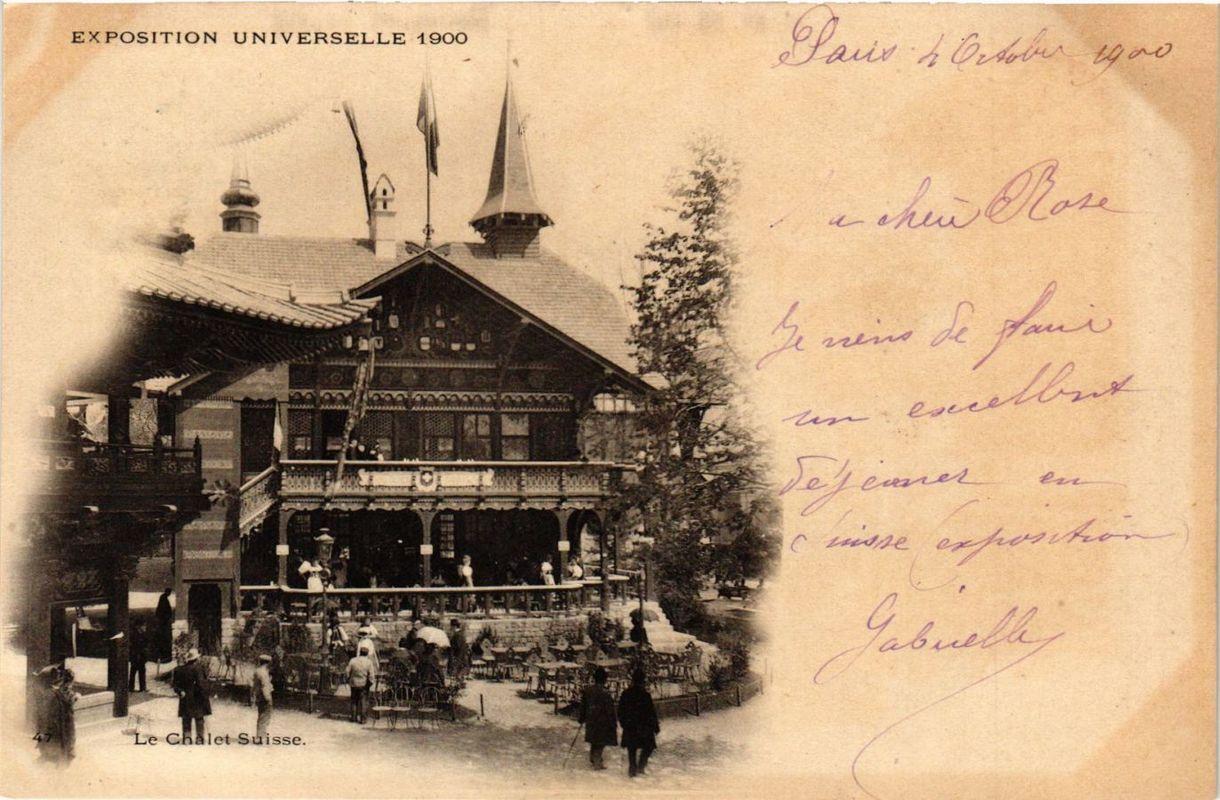 EXPOSITION UNIVERSELLE 1900
Paris 4 October 1900
Ma chère Rose
Je viens de faire
un excellent
déjeuner en
Suisse (exposition)
Gabrielle
47 Le Chalet Suisse.